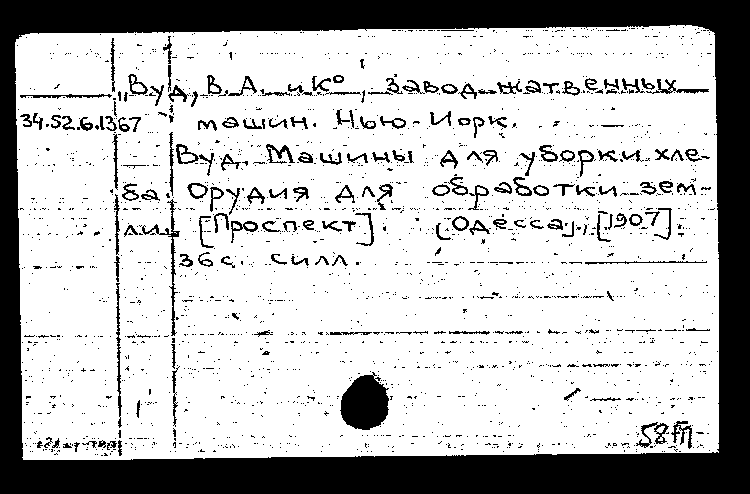 „Вуд, В. А. и К°, завод жатвенных
34.52.6.1367 машин. Нью-Иорк.
Вуд. Машины для уборки хле-
ба. Орудия для обработки зем-
ли. [Проспект]. [Одесса], [1907].
36 с. с илл.